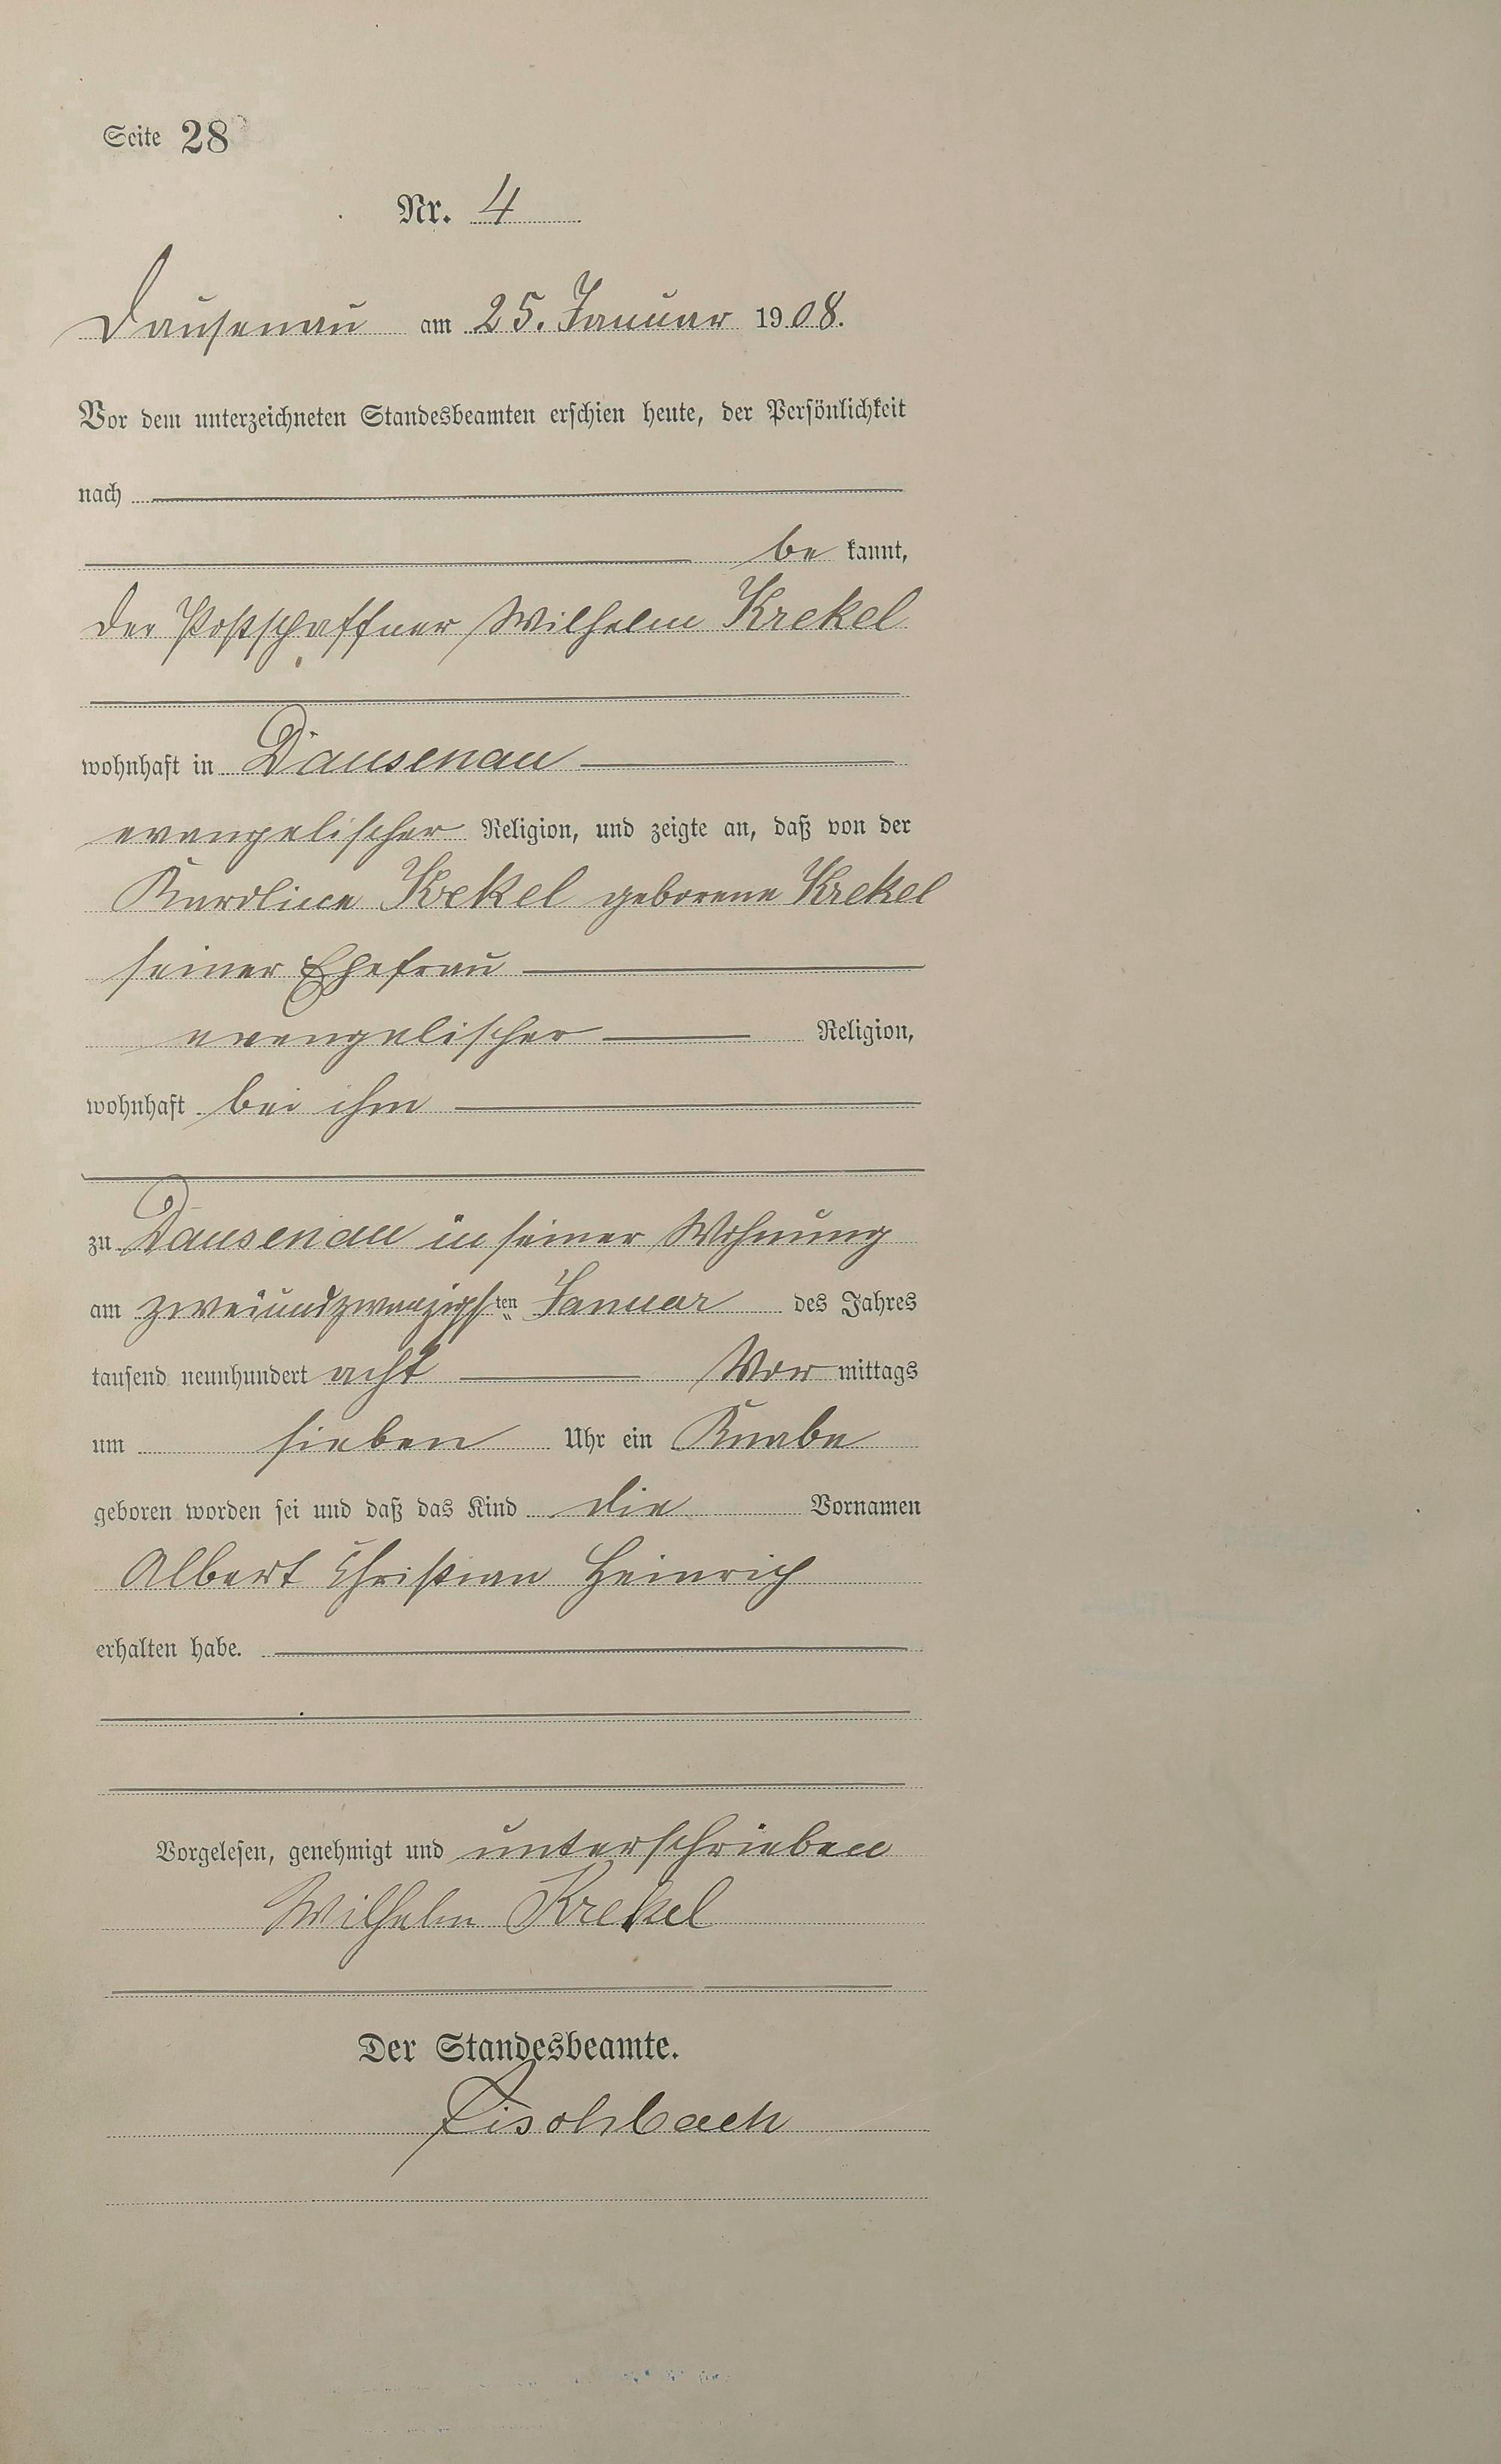 Seite 28
Nr. 4
Dausenau am 25. Januar 1908.
Vor dem unterzeichneten Standesbeamten erschien heute, der Persönlichkeit
nach
be kannt,
der Postschaffner Wilhelm Krekel
wohnhaft in Dausenau
evangelischer Religion, und zeigte an, daß von der
Karoline Krekel geborene Krekel
seiner Ehefrau
evangelischer Religion,
wohnhaft bei ihm
zu Dausenau in seiner Wohnung
am zweiundzwanzigsten Januar des Jahres
tausend neunhundert acht Vor mittags
um sieben Uhr ein Knabe
geboren worden sei und daß das Kind die Vornamen
Albert Christian Heinrich
erhalten habe.
Vorgelesen, genehmigt und unterschrieben
Wilhelm Krekel
Der Standesbeamte.
Fischbach